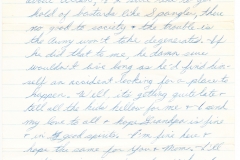 hold of bastards like Spangler, there
no good to society & the trouble is
the Army won't take degenerates. If
he did that to me, he damn sure
wouldn't live long as he'd find him-
self an accident looking for a place to
happen. Well, its getting quite late &
tell all the kids hello for me & send
my love to all & hope Grandpa is fine
& in good spirits. I'm fine here &
hope the same for you & Mom. I'll